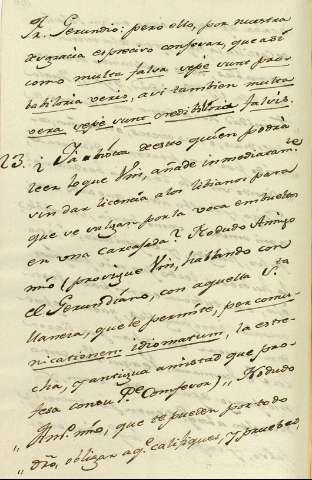 Fr. Gerundio: pero ello, por nuestra
es preciso confesar, que asi
como multa falsa sepè sunt pro-
babilioria veris, asi tambien multa
vera sepè sunt credibilioria falsis.
23. ¿Ya vista de esto quien podrà
leer lo que Vm, añade inmediatam.te
sin dar licencia a los libianos para
que se valgan por la voca embueltos
en una carcajada? Nodudo Amigo
mio (prosigue Vm, hablando con
el Gerundiano, con aquella S.ta
llaneza, que le permite, per comu-
nicationem idiomatum, la estre-
cha, y antigua amistad que pro-
fesa con su P.e Confesor) „ Nodudo
„ Am.o mio, que se pueden por todo
„ dro, obligar a q.e califiques, y pruebes,